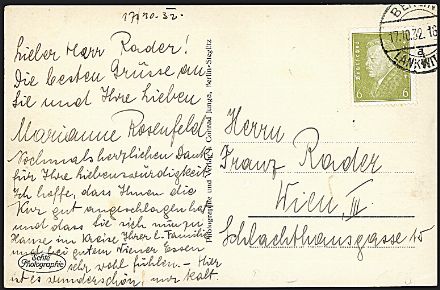 17/10.32.
Lieber Herr Rader!
Die besten Grüsse an
Sie und Ihre Lieben
Marianne Rosenfeld
Nochmals herzlichen Dank
für Ihre Liebenswürdigkeit.
Ich hoffe, dass Ihnen die
Kur gut angeschlagen hat
und dass Sie sich nun zu
Hause im Kreise Ihrer l. Familie
und bei gutem Wiener Essen
sehr wohl fühlen. – Hier
ist es wunderschön, nur kalt
Echte
Photographie
Conrad Junga, Berlin-Steglitz
BERLIN
17.10.32. 16
a
LANKWITZ
6 6
Herrn
Franz Rader
Wien III
Schlachthausgasse 15